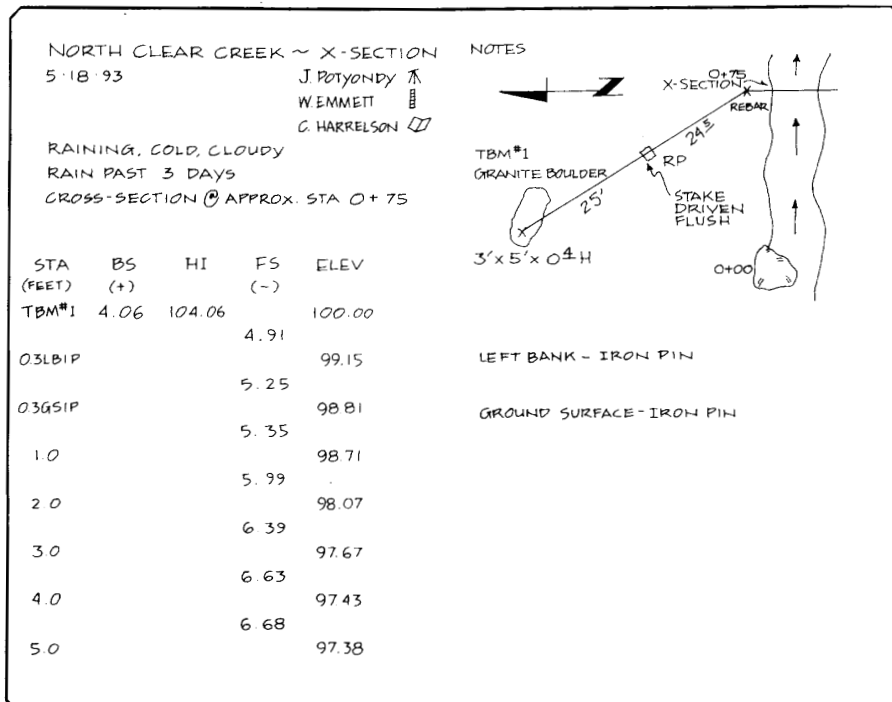 NORTH CLEAR CREEK ~ X-SECTION
5·18·93
J. POTYONDY
W. EMMETT
C. HARRELSON
RAINING, COLD, CLOUDY
RAIN PAST 3 DAYS
CROSS-SECTION @ APPROX. STA 0+75
STA BS HI FS ELEV
(FEET) (+) (-)
TBM#1 4.06 104.06 100.00
4.91
0.3LBIP 99.15
5.25
0.3GSIP 98.81
5.35
1.0 98.71
5.99
2.0 98.07
6.39
3.0 97.67
6.63
4.0 97.43
6.68
5.0 97.38
NOTES
Z
0+75
X-SECTION
X
REBAR
24.5
RP
TBM#1
GRANITE BOULDER
25'
STAKE
DRIVEN
FLUSH
X
3'x5'x0.4 H
0+00
LEFT BANK - IRON PIN
GROUND SURFACE - IRON PIN